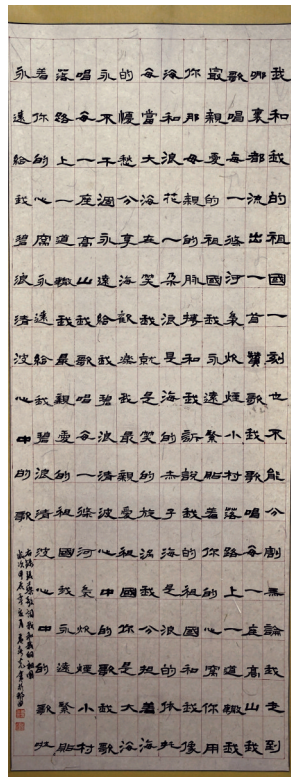 我和我的祖國一刻也不能分割無論我走到
哪裏都流出一首贊歌我歌唱每一座高山我
歌唱每一條河裊炊煙小村落路上一道轍我
最親愛的祖國我永遠緊貼着你的心窩你用
你那母親的脈搏和我訴說我的祖國和我像
海和浪花一朵浪是海的赤子海是浪的依托
每當大海在笑我就是笑的旋渦我分擔着海
的憂愁分享海歡樂我最親愛祖國你是大海
永不干涸永遠給我碧浪清波心中的歌我歌
唱每一座高山我歌唱每一條河裊炊煙小村
落路上一道轍我最親愛的祖國我永遠緊貼
着你的心窩永遠給我碧浪清波心中的歌啦
永遠給我碧浪清波心中的歌